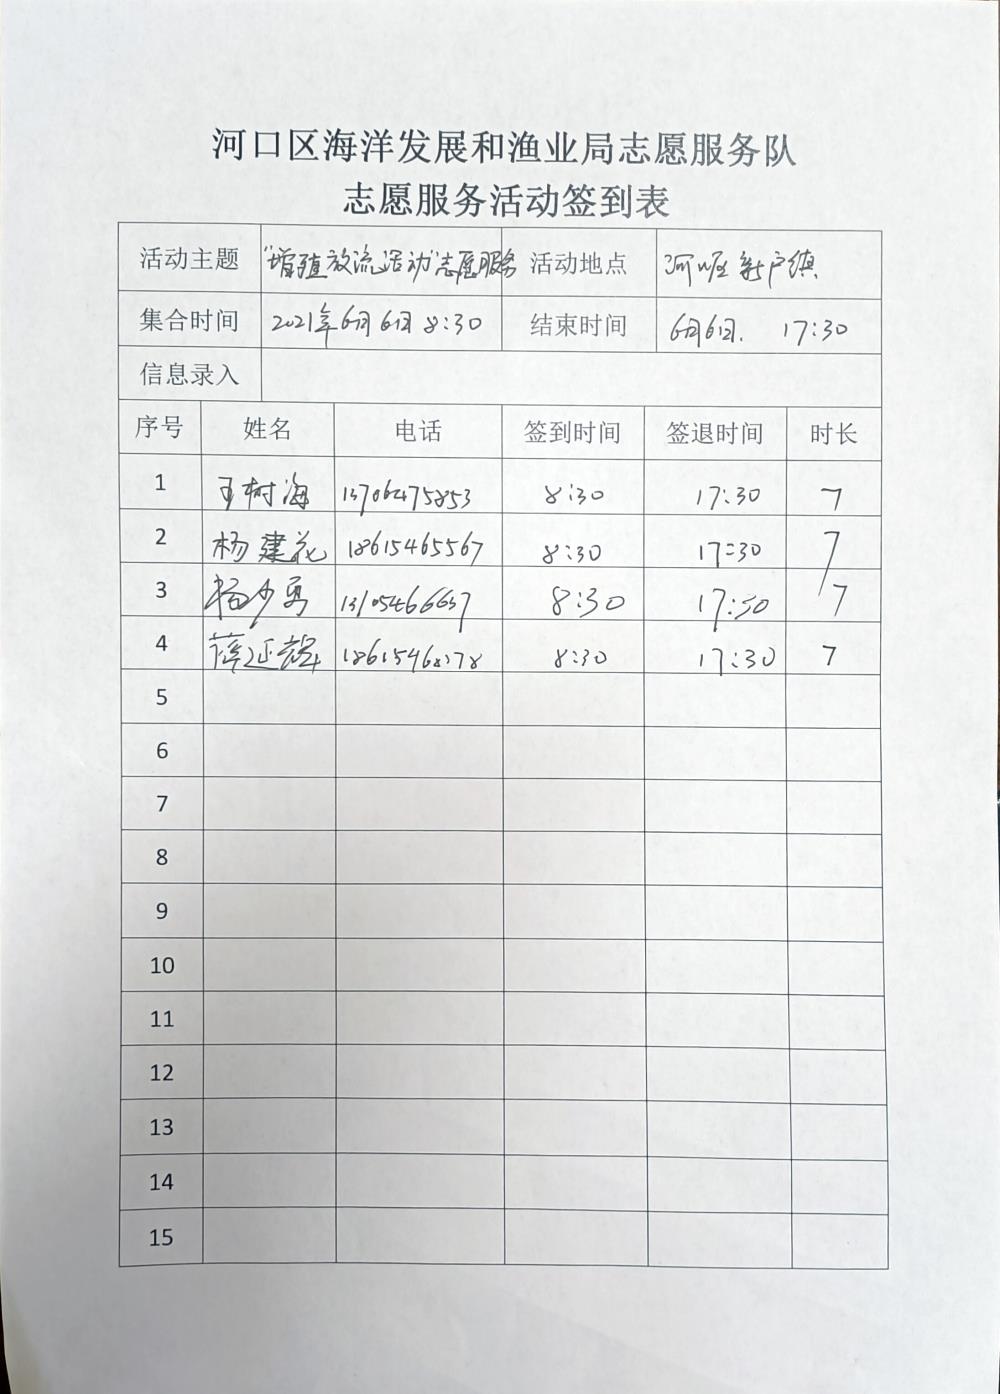 河口区海洋发展和渔业局志愿服务队
志愿服务活动签到表
活动主题 "增殖放流活动"志愿服务 活动地点 河口区新户镇
集合时间 2021年6月6日 8:30 结束时间 6月6日. 17:30
信息录入
序号 姓名 电话 签到时间 签退时间 时长
1 王树海 13706475853 8:30 17:30 7
2 杨建花 18615465567 8:30 17:30 7
3 杨少勇 13105466637 8:30 17:30 7
4 薛延 8:30 17:30 7
5
6
7
8
9
10
11
12
13
14
15